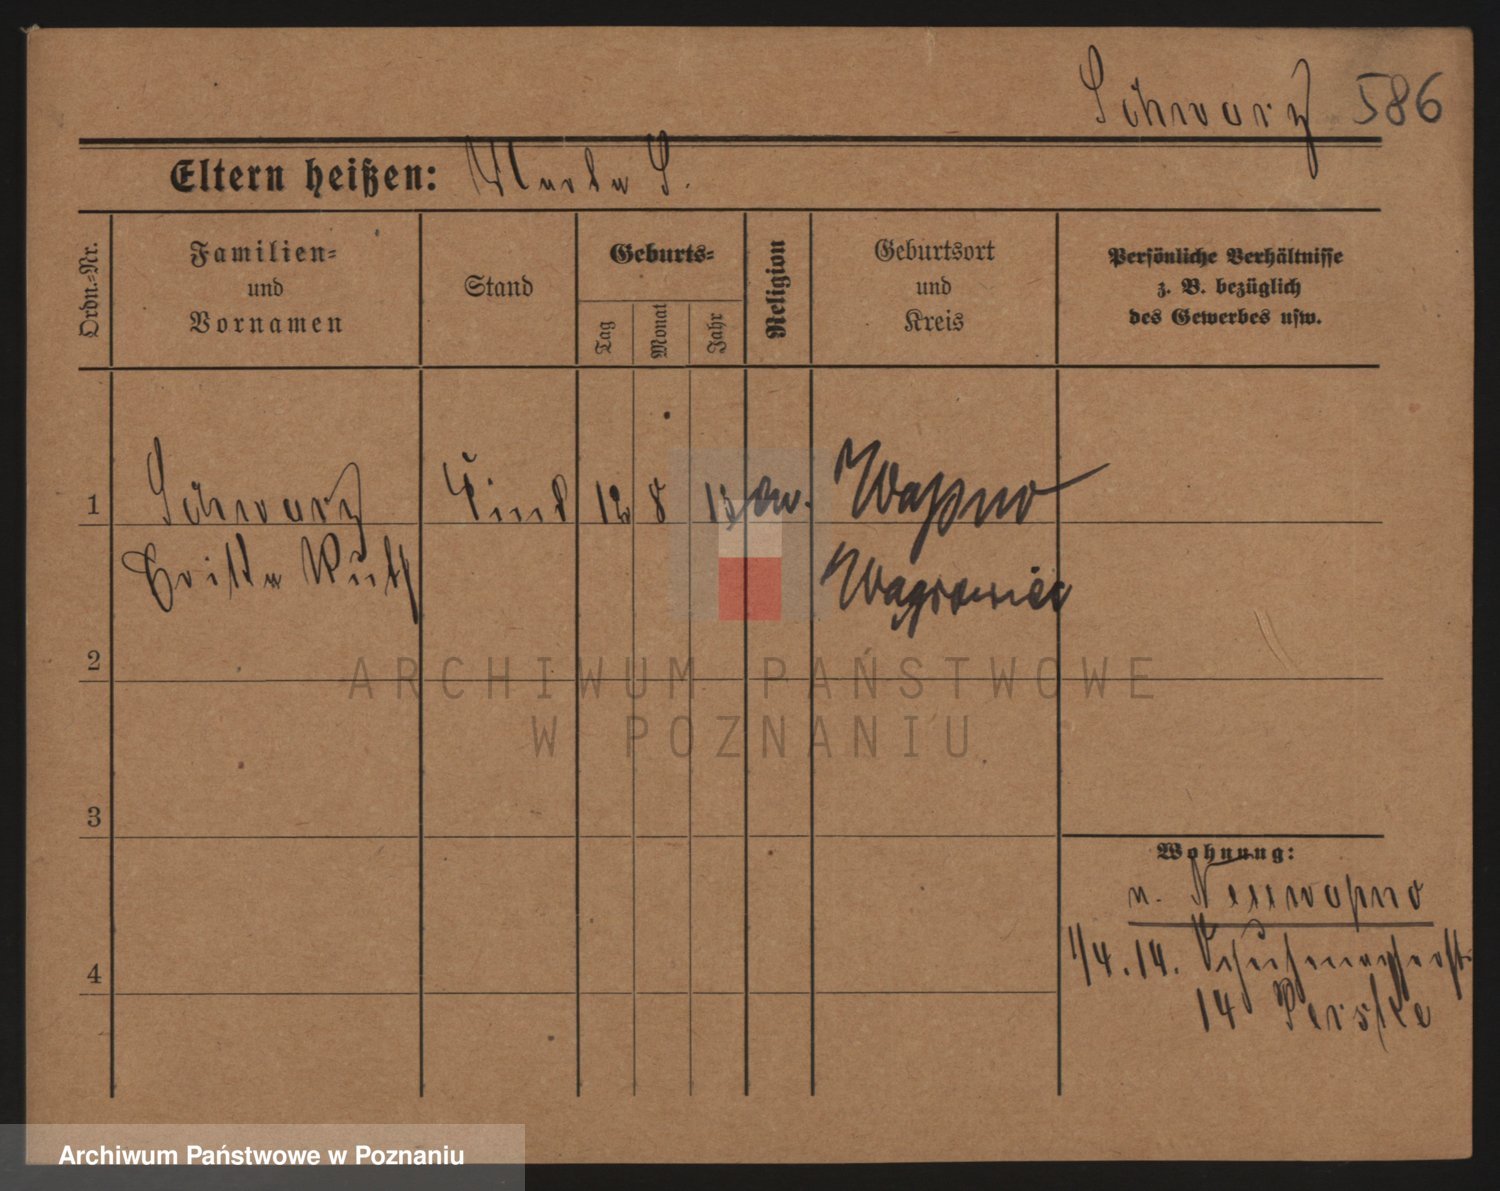 Schwarz 586
Eltern heißen: Marta S.
Ordn.-Nr.
Familien-
und
Vornamen
Stand
Geburts-
Tag
Monat
Jahr
Religion
Geburtsort
und
Kreis
Persönliche Verhältnisse
z. B. bezüglich
des Gewerbes usw.
1 Schwarz Kind 12 8 13 ev. Wapno
Ruth Wągrowiec
2
3
4
Wohnung:
n. Neuwapno
1/4. 14. Schuhmacherstr.
14
ARCHIWUM PAŃSTWOWE
W POZNANIU
Archiwum Państwowe w Poznaniu